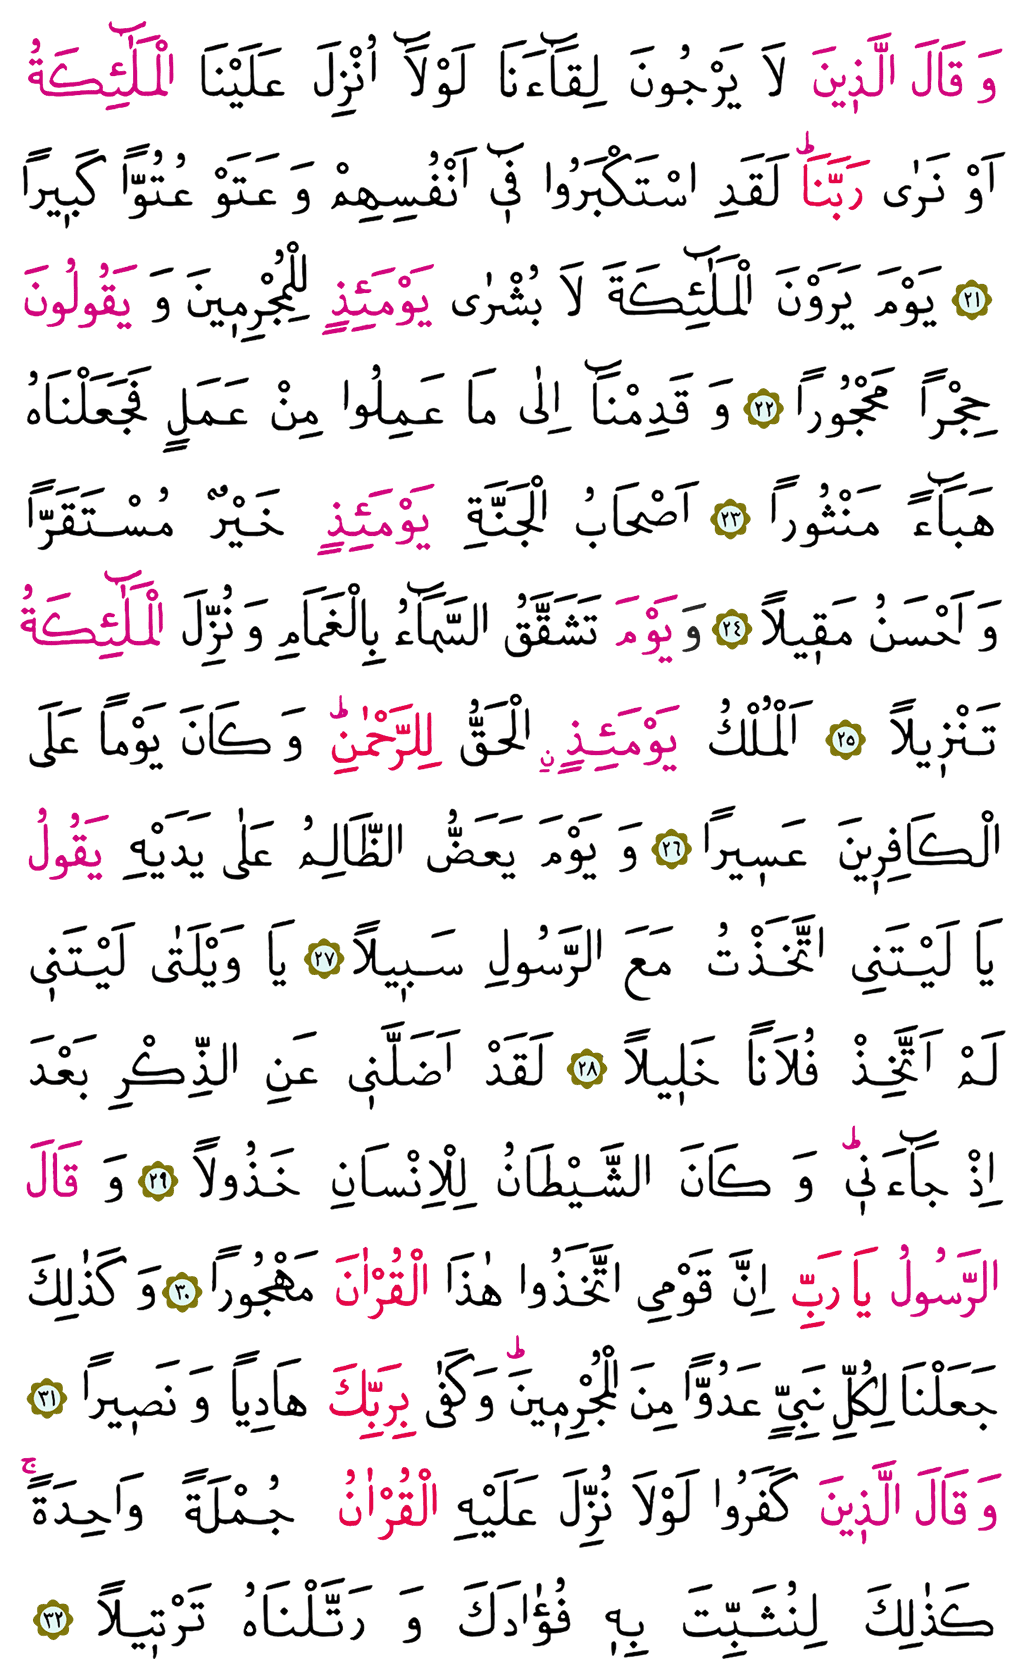 وَ قَالَ الَّذ۪ينَ لَا يَرْجُونَ لِقَٓاءَنَا لَوْلَٓا اُنْزِلَ عَلَيْنَا الْمَلٰٓئِكَةُ
اَوْ نَرٰى رَبَّنَاؕ لَقَدِ اسْتَكْبَرُوا ف۪ٓي اَنْفُسِهِمْ وَ عَتَوْ عُتُوًّا كَب۪يراً
﴿٢١﴾ يَوْمَ يَرَوْنَ الْمَلٰٓئِكَةَ لَا بُشْرٰى يَوْمَئِذٍ لِلْمُجْرِم۪ينَ وَ يَقُولُونَ
حِجْراً مَحْجُوراً ﴿٢٢﴾ وَ قَدِمْنَٓا اِلٰى مَا عَمِلُوا مِنْ عَمَلٍ فَجَعَلْنَاهُ
هَبَٓاءً مَنْثُوراً ﴿٢٣﴾ اَصْحَابُ الْجَنَّةِ يَوْمَئِذٍ خَيْرٌ مُسْتَقَرًّا
وَ اَحْسَنُ مَق۪يلاً ﴿٢٤﴾ وَ يَوْمَ تَشَقَّقُ السَّمَٓاءُ بِالْغَمَامِ وَ نُزِّلَ الْمَلٰٓئِكَةُ
تَنْز۪يلاً ﴿٢٥﴾ اَلْمُلْكُ يَوْمَئِذٍۨ الْحَقُّ لِلرَّحْمٰنِؕ وَ كَانَ يَوْماً عَلَى
الْكَافِر۪ينَ عَس۪يراً ﴿٢٦﴾ وَ يَوْمَ يَعَضُّ الظَّالِمُ عَلٰى يَدَيْهِ يَقُولُ
يَا لَيْتَنِي اتَّخَذْتُ مَعَ الرَّسُولِ سَب۪يلاً ﴿٢٧﴾ يَا وَيْلَتٰى لَيْتَن۪ي
لَمْ اَتَّخِذْ فُلَاناً خَل۪يلاً ﴿٢٨﴾ لَقَدْ اَضَلَّن۪ي عَنِ الذِّكْرِ بَعْدَ
اِذْ جَٓاءَن۪يؕ وَ كَانَ الشَّيْطَانُ لِلْاِنْسَانِ خَذُولاً ﴿٢٩﴾ وَ قَالَ
الرَّسُولُ يَا رَبِّ اِنَّ قَوْمِي اتَّخَذُوا هٰذَا الْقُرْاٰنَ مَهْجُوراً ﴿٣٠﴾ وَ كَذٰلِكَ
جَعَلْنَا لِكُلِّ نَبِيٍّ عَدُوًّا مِنَ الْمُجْرِم۪ينَؕ وَ كَفٰى بِرَبِّكَ هَادِياً وَ نَص۪يراً ﴿٣١﴾
وَ قَالَ الَّذ۪ينَ كَفَرُوا لَوْلَا نُزِّلَ عَلَيْهِ الْقُرْاٰنُ جُمْلَةً وَاحِدَةًۚ
كَذٰلِكَ لِنُثَبِّتَ بِه۪ فُؤٰادَكَ وَ رَتَّلْنَاهُ تَرْت۪يلاً ﴿٣٢﴾